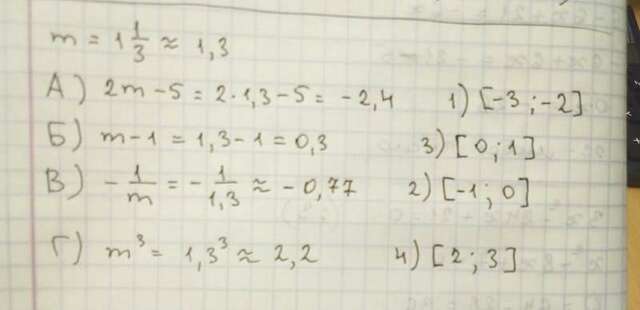 m = 1 1/3 ≈ 1,3
А) 2m-5 = 2·1,3-5 = -2,4 1) [-3;-2]
Б) m-1 = 1,3-1 = 0,3 3) [0;1]
В) -1/m = -1/1,3 ≈ -0,77 2) [-1;0]
Г) m³ = 1,3³ ≈ 2,2 4) [2;3]